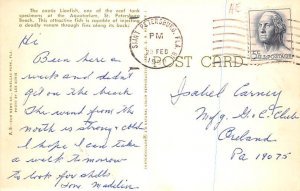 The exotic Lionfish, one of the reef tank
specimens at the Aquatarium, St. Petersburg
Beach. This attractive fish is capable of injecting
a deadly venom through fins along its back.
Hi
Been here a
week and didn't
get on the beach
The wind from the
north is strong & cold
I hope I can take
a walk tomorrow
to look for shells
Love Madelin
SAINT PETERSBURG, FLA.
PM
FEB
POST CARD
5¢
Isabel Carney
Mfg. G. C. Club
Oreland
Pa 19075